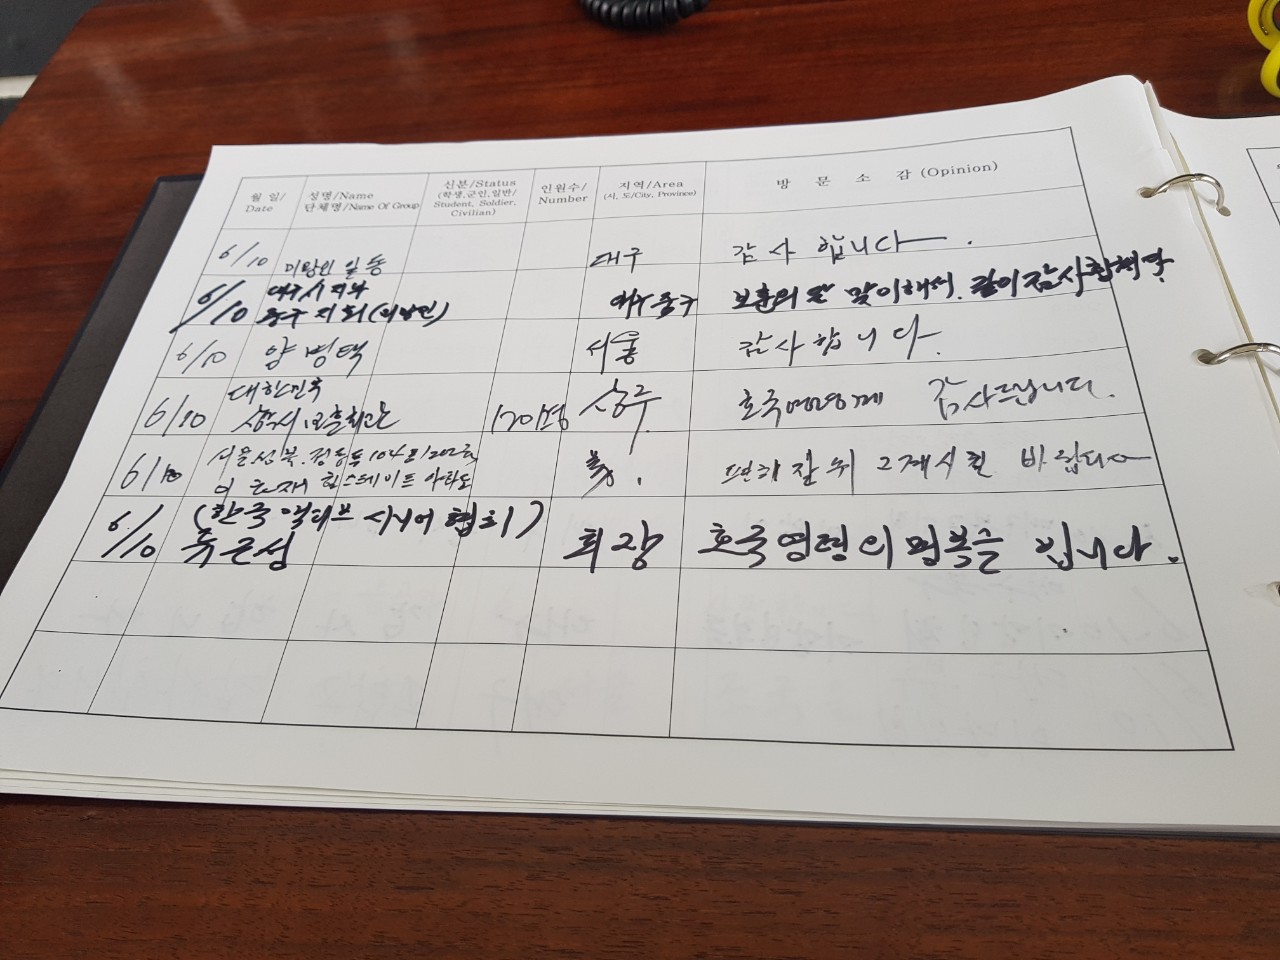 월 일/ Date
성명/Name
단체명/Name Of Group
신분/Status
(학생,군인,일반/
Student, Soldier,
Civilian)
인원수/
Number
지역/Area
(시, 도/City, Province)
방 문 소 감 (Opinion)
6/10 미망인 일동 대구 감사합니다.
6/10 대구시지부
중구지회(미망인) 대구중구 보훈의 달 맞이해서. 깊이 감사
6/10 양명택 서울 감사합니다.
6/10 대한민국
상주시 보훈회관 120명 상주 호국영령께 감사드립니다.
6/10 서울성북.
힐스테이트 편히 잘 쉬 계시길 바랍니다
6/10 (한국액티브시니어협회)
회장 호국영령의 명복을 빕니다.